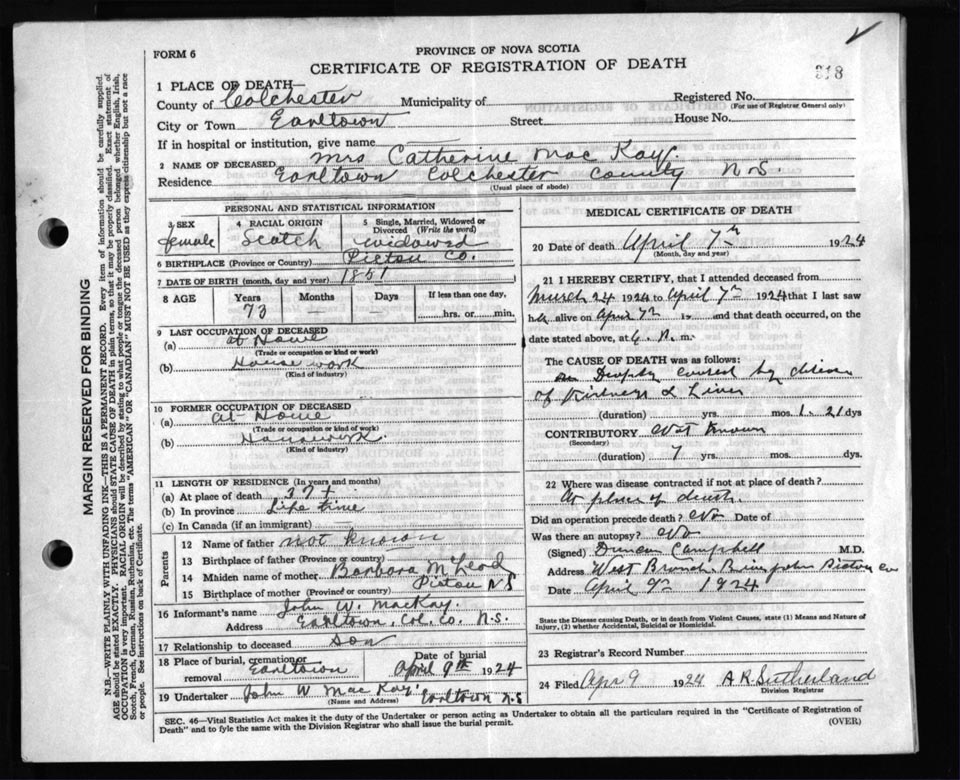 FORM 6
PROVINCE OF NOVA SCOTIA
CERTIFICATE OF REGISTRATION OF DEATH
318
1 PLACE OF DEATH—
County of Colchester Municipality of Registered No.
(For use of Registrar General only)
City or Town Earltown Street House No.
If in hospital or institution, give name
2 NAME OF DECEASED Mrs Catherine Mac Kay.
Residence Earltown Colchester County N.S.
(Usual place of abode)
PERSONAL AND STATISTICAL INFORMATION
3 SEX female
4 RACIAL ORIGIN Scotch
5 Single, Married, Widowed or Divorced (Write the word) widowed
6 BIRTHPLACE (Province or Country) Pictou Co.
7 DATE OF BIRTH (month, day and year) 1851
8 AGE Years 73 Months — Days — If less than one day, hrs. or min.
9 LAST OCCUPATION OF DECEASED
(a) at Home
(Trade or occupation or kind or work)
(b) House work
(Kind of industry)
10 FORMER OCCUPATION OF DECEASED
(a) at Home
(Trade or occupation or kind of work)
(b) Housework.
(Kind of industry)
11 LENGTH OF RESIDENCE (In years and months)
(a) At place of death 37
(b) In province Life time
(c) In Canada (if an immigrant)
Parents
12 Name of father not known
13 Birthplace of father (Province or country)
14 Maiden name of mother Barbara McLeod
15 Birthplace of mother (Province or country) Pictou N.S
16 Informant's name John W. MacKay.
Address Earltown, Col. Co. N.S.
17 Relationship to deceased Son
18 Place of burial, cremation or removal Earltown Date of burial April 9th 1924
19 Undertaker John W Mac Kay Earltown N.S
(Name and Address)
MEDICAL CERTIFICATE OF DEATH
20 Date of death April 7th 1924
(Month, day and year)
21 I HEREBY CERTIFY, that I attended deceased from
March 24 1924 to April 7th 1924 that I last saw
h alive on April 7th 19 and that death occurred, on the
date stated above, at 6 m.
The CAUSE OF DEATH was as follows:
Dropsy caused by disease
of Kidneys & Liver
(duration) yrs. mos. 21 dys
CONTRIBUTORY Not Known
(Secondary)
(duration) 7 yrs. mos. dys.
22 Where was disease contracted if not at place of death?
At place of death.
Did an operation precede death? No Date of
Was there an autopsy? No
(Signed) Duncan Campbell M.D.
Address West Branch, River John Pictou Co
Date April 9th 1924
State the Disease causing Death, or in death from Violent Causes, state (1) Means and Nature of Injury, (2) whether Accidental, Suicidal or Homicidal.
23 Registrar's Record Number
24 Filed Apr 9 1924 A R Sutherland
Division Registrar
SEC. 46—Vital Statistics Act makes it the duty of the Undertaker or person acting as Undertaker to obtain all the particulars required in the "Certificate of Registration of
Death" and to fyle the same with the Division Registrar who shall issue the burial permit. (OVER)
MARGIN RESERVED FOR BINDING
N.B.—WRITE PLAINLY WITH UNFADING INK—THIS IS A PERMANENT RECORD. Every item of information should be carefully supplied.
AGE should be stated EXACTLY. PHYSICIANS should STATE CAUSE OF DEATH in plain terms, so that it may be properly classified. Exact statement of
OCCUPATION is very important. RACIAL ORIGIN will be described by stating to what people or tongue the deceased person belonged whether English, Irish,
Scotch, French, German, Russian, Ruthenian, etc. The terms "AMERICAN" OR "CANADIAN" MUST NOT BE USED as they express citizenship but not a race
or people. See instructions on back of Certificate.